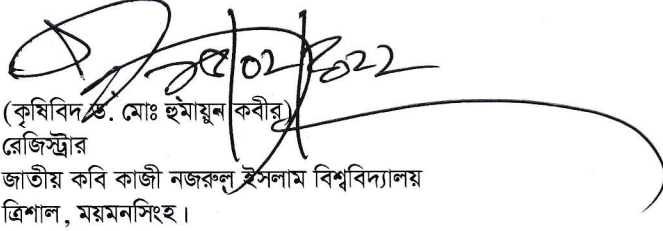 ১৫/০২/২০২২
(কৃষিবিদ ড. মোঃ হুমায়ুন কবীর)
রেজিস্ট্রার
জাতীয় কবি কাজী নজরুল ইসলাম বিশ্ববিদ্যালয়
ত্রিশাল, ময়মনসিংহ।